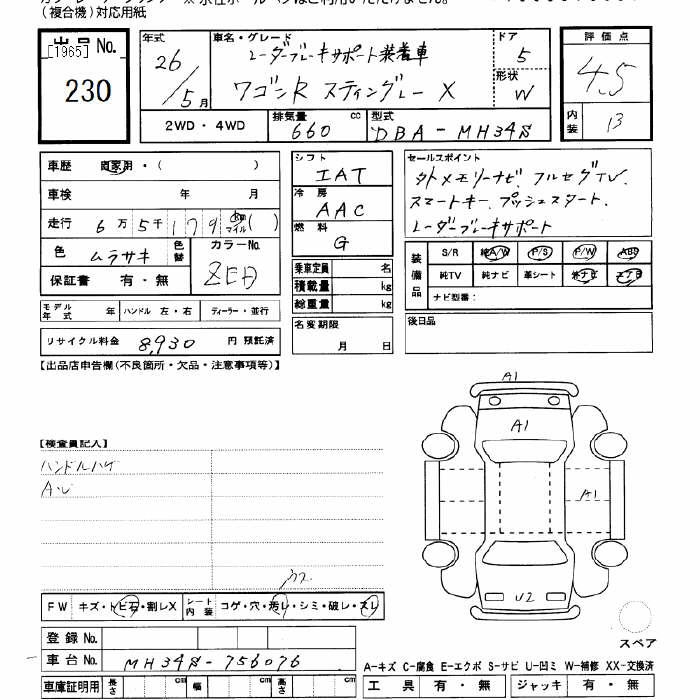 (複合機)対応用紙
出品No.
[1965]
230
年式
26/5月
車名・グレード
レーダーブレーキサポート装着車
ワゴンR スティングレー X
ドア
5
形状
W
2WD・4WD
排気量
660 cc
型式
DBA-MH34S
評価点
4.5
内装
B
車歴 自家用・( )
車検 年 月
走行 6万5千179 km マイル ( )
色 ムラサキ 色替
カラーNo. ZED
保証書 有・無
モデル年式 年 ハンドル 左・右 ディーラー・並行
リサイクル料金 8,930 円 預託済
シフト
IAT
冷房
AAC
燃料
G
乗車定員 名
積載量 kg
総重量 kg
名変期限
月 日
セールスポイント
外メモリーナビ、フルセグTV
スマートキー、プッシュスタート、
レーダーブレーキサポート
装備品
S/R 純A/W P/S P/W ABS
純TV 純ナビ 革シート 外ナビ エアB
ナビ型番:
後日品
【出品店申告欄(不良箇所・欠品・注意事項等)】
A1
A1
A1
U2
スペア
【検査員記入】
ハンドルハゲ
A・U
FW キズ・トビ石・割レX シート内装 コゲ・穴・汚レ・シミ・破レ・スレ
登録No.
車台No. MH34S-756076
車庫証明用 長さ cm 幅 cm 高さ cm
A-キズ C-腐食 E-エクボ S-サビ U-凹ミ W-補修 XX-交換済
工具 有・無 ジャッキ 有・無